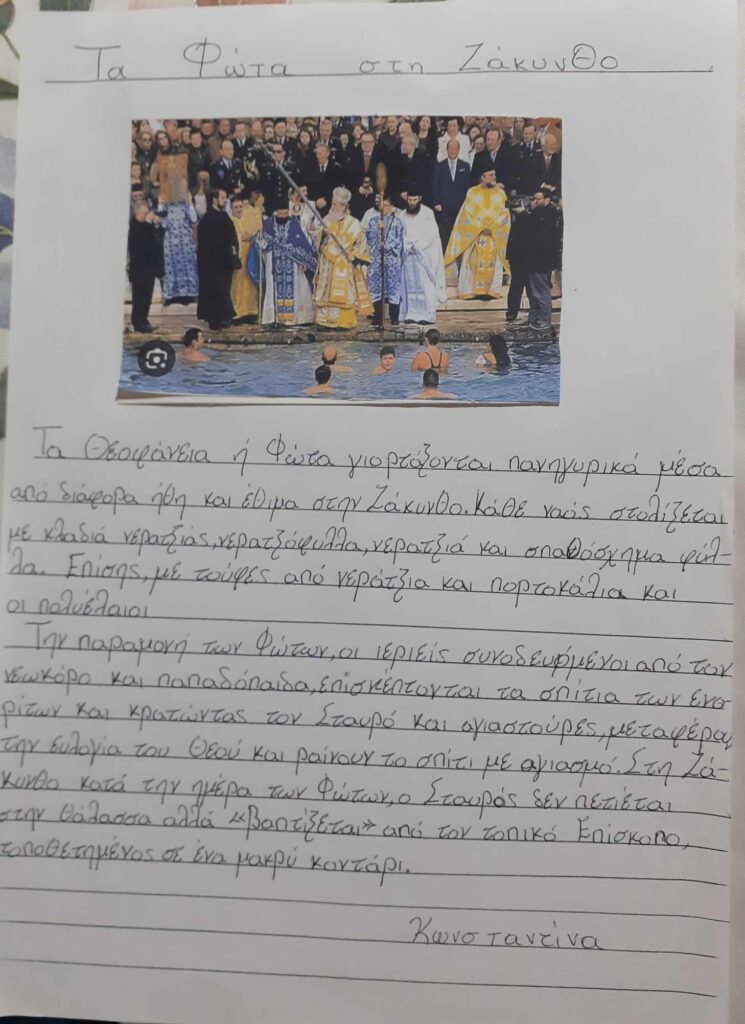 Τα Φώτα στη Ζάκυνθο
Τα Θεοφάνεια ή Φώτα γιορτάζονται πανηγυρικά μέσα
από διάφορα ήθη και έθιμα στην Ζάκυνθο. Κάθε ναός στολίζεται
με κλαδιά νερατζιάς, νερατζόφυλλα, νερατζιά και σπαθόσχημα φύλ-
λα. Επίσης, με τούφες από νεράτζια και πορτοκάλια και
οι πολυέλαιοι
Την παραμονή των Φώτων, οι ιεριείς συνοδευόμενοι από τον
νεωκόρο και παπαδόπαιδα, επισκέπτονται τα σπίτια των ενο
ρίτων και κρατώντας τον Σταυρό και αγιαστούρες, μεταφέρου
την ευλογία του Θεού και ραίνουν το σπίτι με αγιασμό. Στη Ζά-
κυνθο κατά την ημέρα των Φώτων, ο Σταυρός δεν πετιέται
στην θάλασσα αλλά «βαπτίζεται» από τον τοπικό Επίσκοπο,
τοποθετημένος σε ένα μακρύ κοντάρι.
Κωνσταντίνα